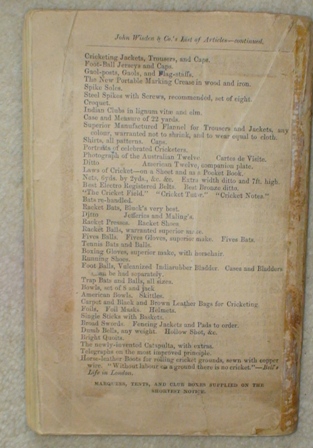 John Wisden & Co.'s List of Articles—continued.
Cricketing Jackets, Trousers, and Caps.
Foot-Ball Jerseys and Caps.
Goal-posts, Goals, and Flag-staffs.
The New Portable Marking Crease in wood and iron.
Spike Soles.
Steel Spikes with Screws, recommended, set of eight
Croquet.
Indian Clubs in lignum vitæ and elm.
Case and Measure of 22 yards.
Superior Manufactured Flannel for Trousers and Jackets, any
colour, warranted not to shrink, and to wear equal to cloth.
Shirts, all patterns. Caps.
Portraits of celebrated Cricketers.
Photograph of the Australian Twelve Cartes de Visite.
Ditto American Twelve, companion plate.
Laws of Cricket—on a Sheet and as a Pocket Book.
Nets, 6yds. by 2yds, &c. &c. Extra width ditto and 7ft. high.
Best Electro Registered Belts. Best Bronze ditto.
"The Cricket Field." "Cricket Tutor." "Cricket Notes."
Bats re-handled.
Racket Bats, Black's very best.
Ditto Jefferies and Maling's.
Racket Presses. Racket Shoes.
Racket Balls, warranted superior make.
Fives Balls. Fives Gloves, superior make. Fives Bats.
Tennis Bats and Balls.
Boxing Gloves, superior make, with horsehair.
Running Shoes.
Foot Balls, Vulcanized Indiarubber Bladder. Cases and Bladders
can be had separately.
Trap Bats and Balls, all sizes.
Bowls, set of 8 and jack
American Bowls. Skittles.
Carpet and Black and Brown Leather Bags for Cricketing
Foils. Foil Masks Helmets.
Single Sticks with Baskets.
Broad Swords. Fencing Jackets and Pads to order.
Dumb Bells, any weight. Hollow Shot, &c.
Bright Quoits.
The newly-invented Catapulta, with extras.
Telegraphs on the most improved principle.
Horse-leather Boots for rolling cricket grounds, sewn with copper
wire. "Without labour on a ground there is no cricket"—Bell's
Life in London.
MARQUEES, TENTS, AND CLUB BOXES SUPPLIED ON THE
SHORTEST NOTICE.